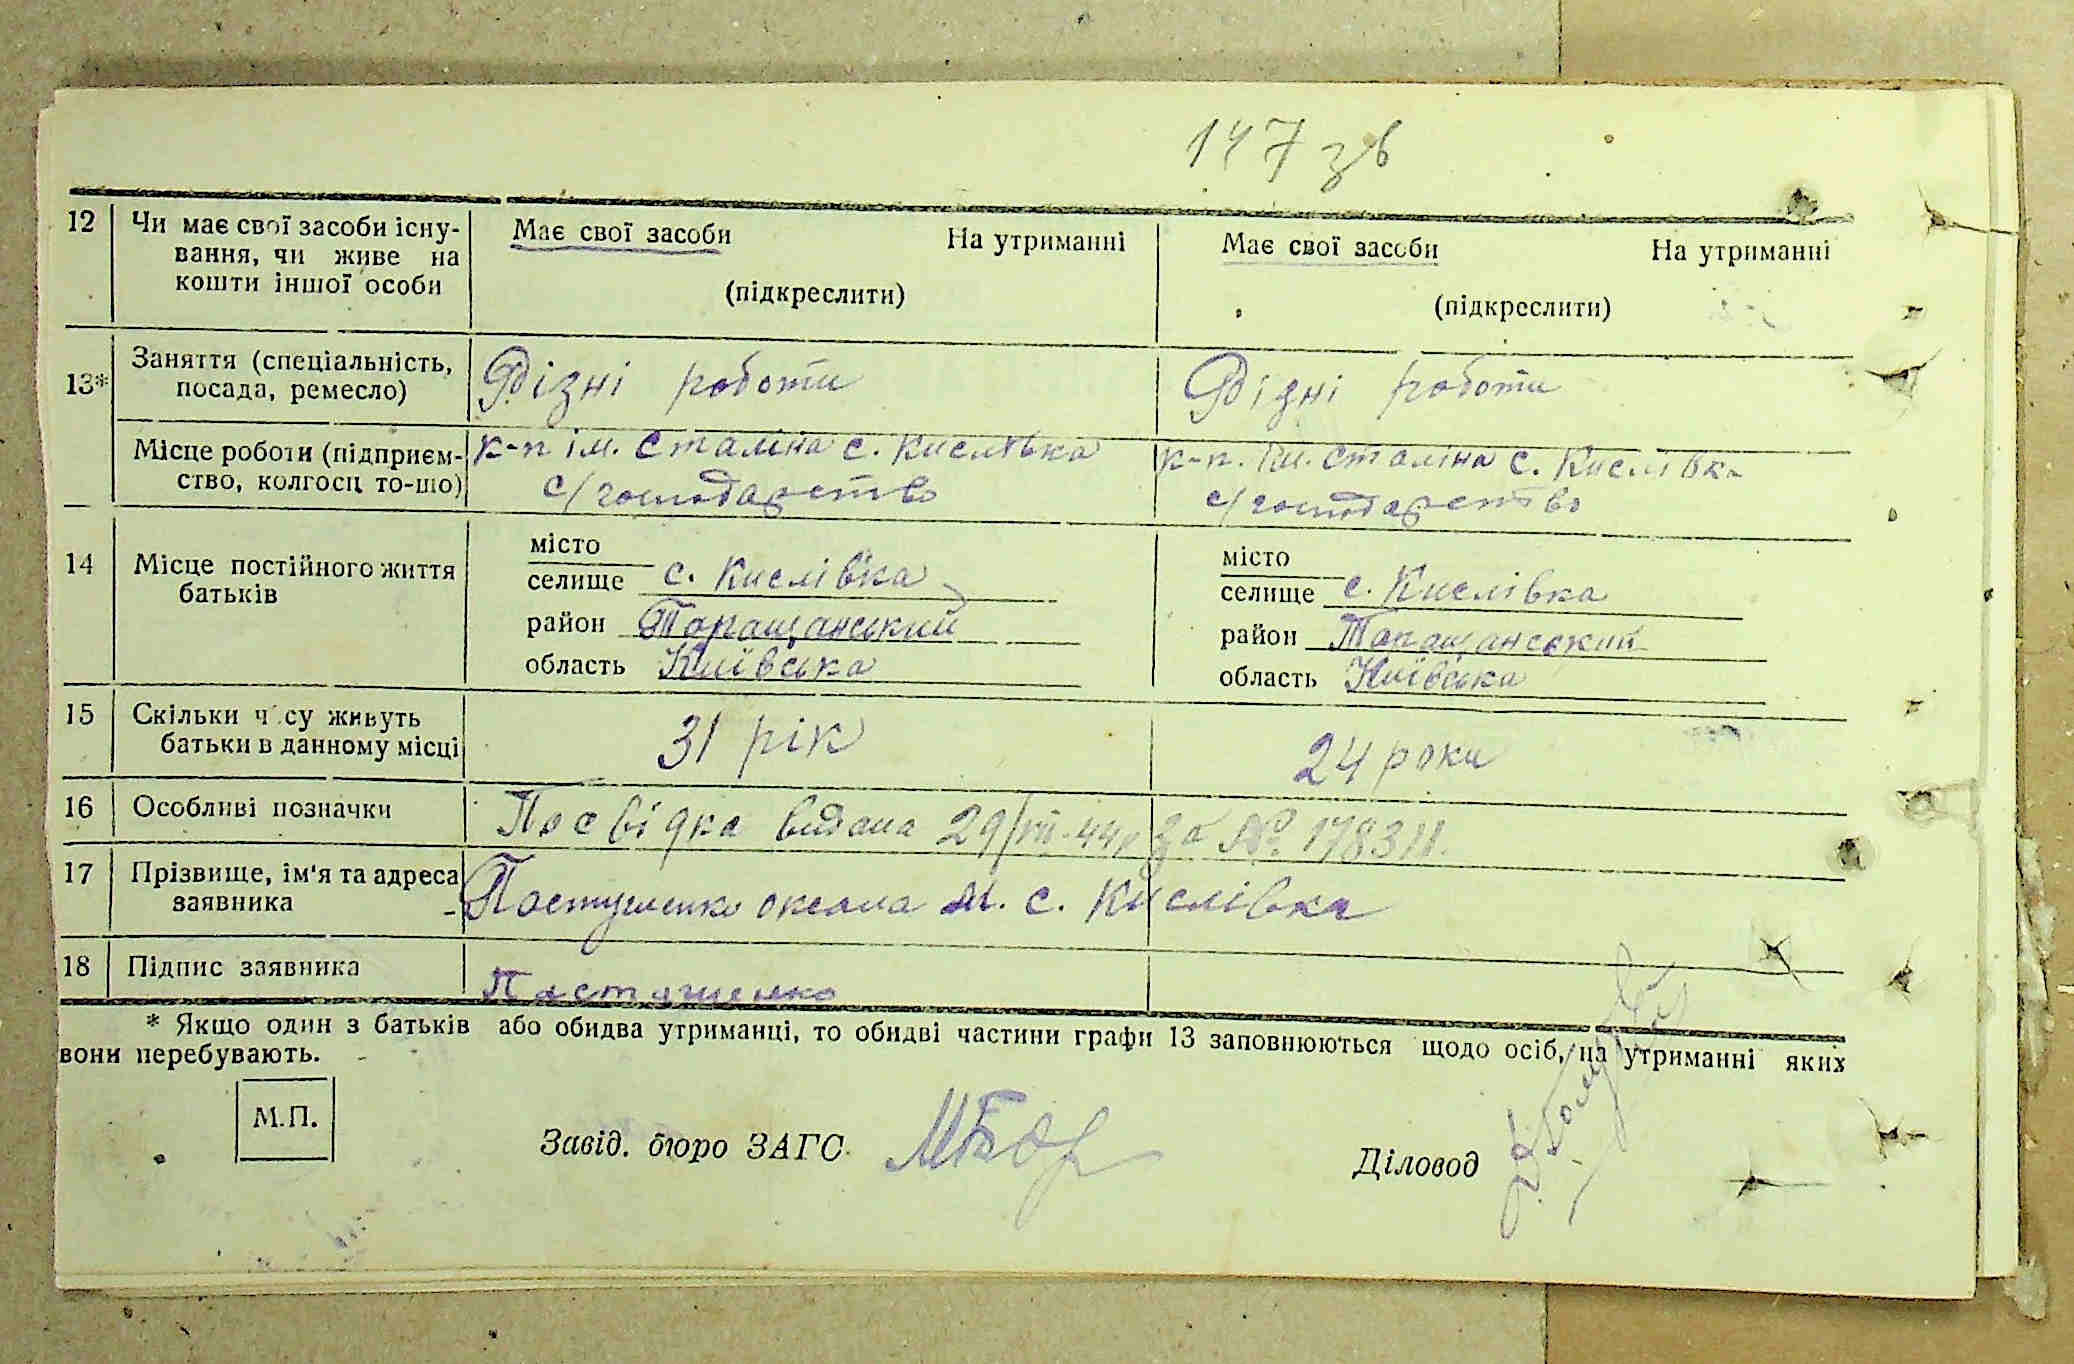 147 зв
12 Чи має свої засоби існу- Має свої засоби На утриманні Має свої засоби На утриманні
вання, чи живе на
кошти іншої особи (підкреслити) (підкреслити)
13* Заняття (спеціальність, Фізні роботи Фізні роботи
посада, ремесло)
Місце роботи (підприєм- к-п ім. Сталіна с. Кислівка к-п. ім. Сталіна с. Кислівка
ство, колгосп то-що) с/господарство с/господарство
14 Місце постійного життя місто місто
батьків селище с. Кислівка селище с. Кислівка
район Таращанський район Таращанський
область Київська область Київська
15 Скільки часу живуть 31 рік 24 роки
батьки в данному місці
16 Особливі позначки Посвідка видана 29/VII-44р за №. 178311.
17 Прізвище, ім'я та адреса Пастушенко оксана М. с. Кислівка
заявника
18 Підпис заявника Пастушенко
* Якщо один з батьків або обидва утриманці, то обидві частини графи 13 заповнюються щодо осіб, на утриманні яких
вони перебувають.
М.П.
Завід. бюро ЗАГС Діловод